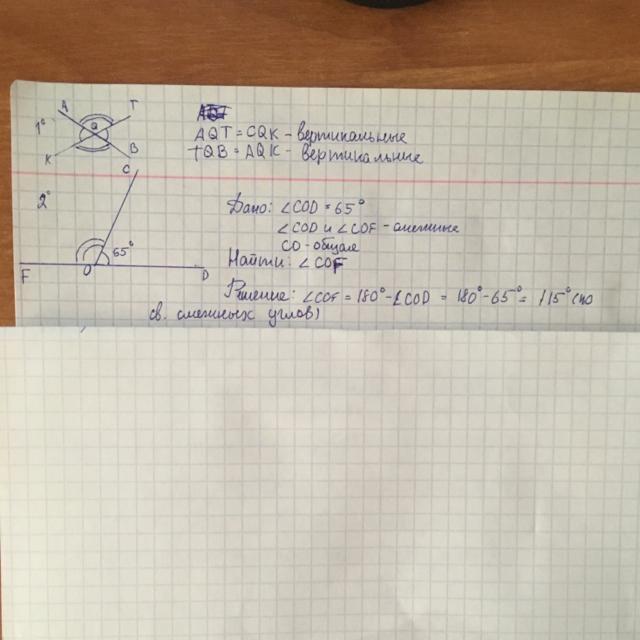 A T
1° Q
K B
AQT = CQK - вертикальные
TQB = AQK - вертикальные
C
2°
65°
F O D
Дано: ∠COD = 65°
∠COD и ∠COF - смежные
CO - общая
Найти: ∠COF
Решение: ∠COF = 180° - ∠COD = 180° - 65° = 115° (по
св. смежных углов)